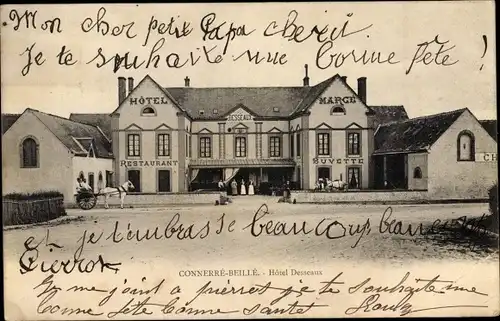 Mon cher petit Papa cherit
Je te souhaite une bonne fête !
HÔTEL
DESSEAUX
MARCÉ
RESTAURANT
BUVETTE
CH
et je t'embrasse beaucoup beaucoup
Pierrot
CONNERRÉ-BEILLÉ. - Hôtel Desseaux
me joint à pierrot je te souhaite une
bonne fête bonne santé